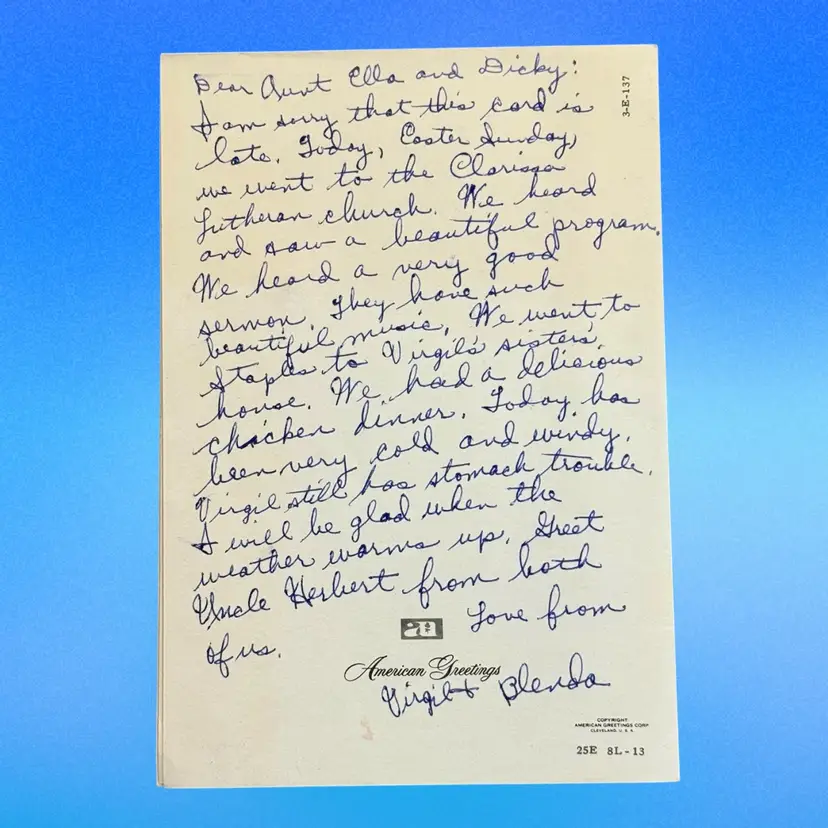 Dear Aunt Ella and Dicky:
3-E-137
I am sorry that this card is
late. Today, Easter Sunday,
we went to the Clarissa
Lutheran church. We heard
and saw a beautiful program.
We heard a very good
sermon. They have such
beautiful music. We went to
Staples to Virgil's sisters'
house. We had a delicious
chicken dinner. Today has
been very cold and windy.
Virgil still has stomach trouble.
I will be glad when the
weather warms up. Greet
Uncle Herbert from both
of us.
Love from
American Greetings
Virgil + Blenda
COPYRIGHT
AMERICAN GREETINGS CORP
CLEVELAND, U. S. A.
25E 8L-13